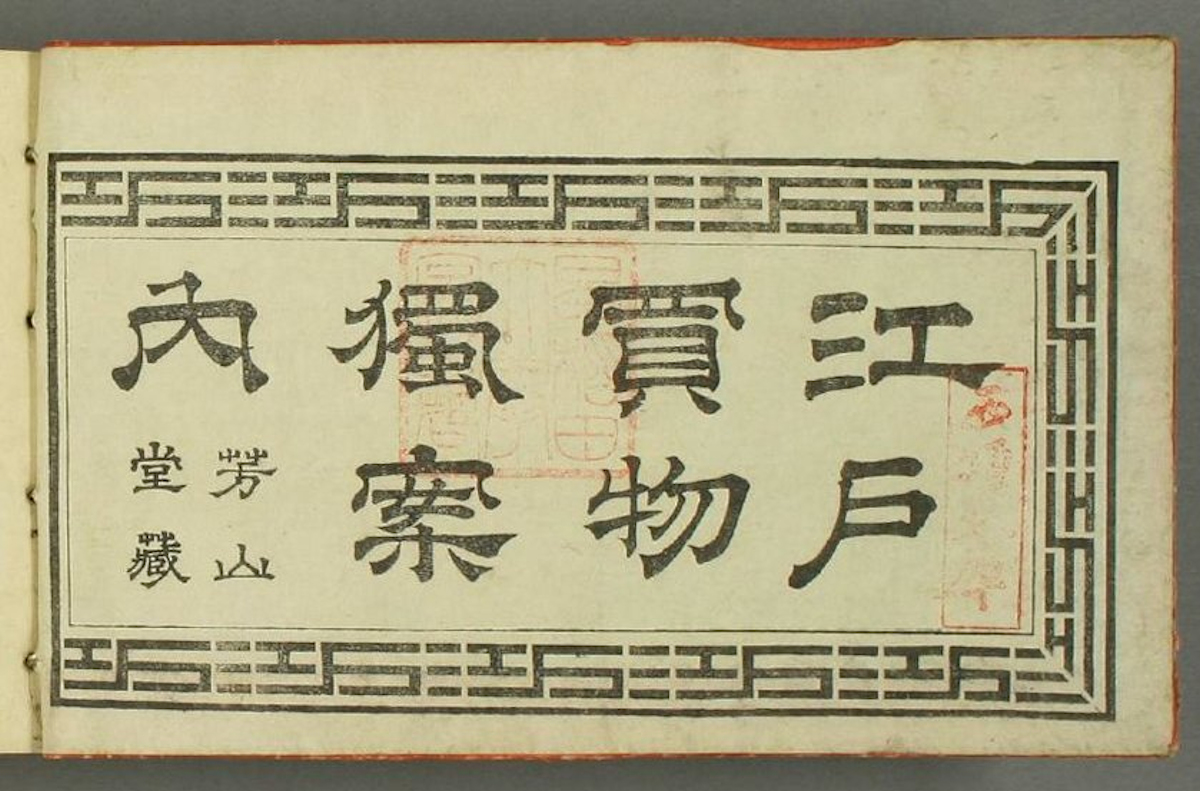 江戸
買物
獨案
内
芳山
堂藏